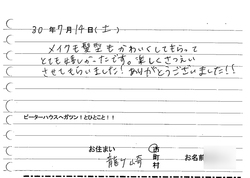 30年7月14日(土)
メイクも髪型もかわいくしてもらって
とても嬉しかったです。楽しくさつえい
させてもらいました!ありがとうございました!!
ピーターハウスへガツン!とひとこと!!
お住まい 市町村 お名前
龍ヶ崎